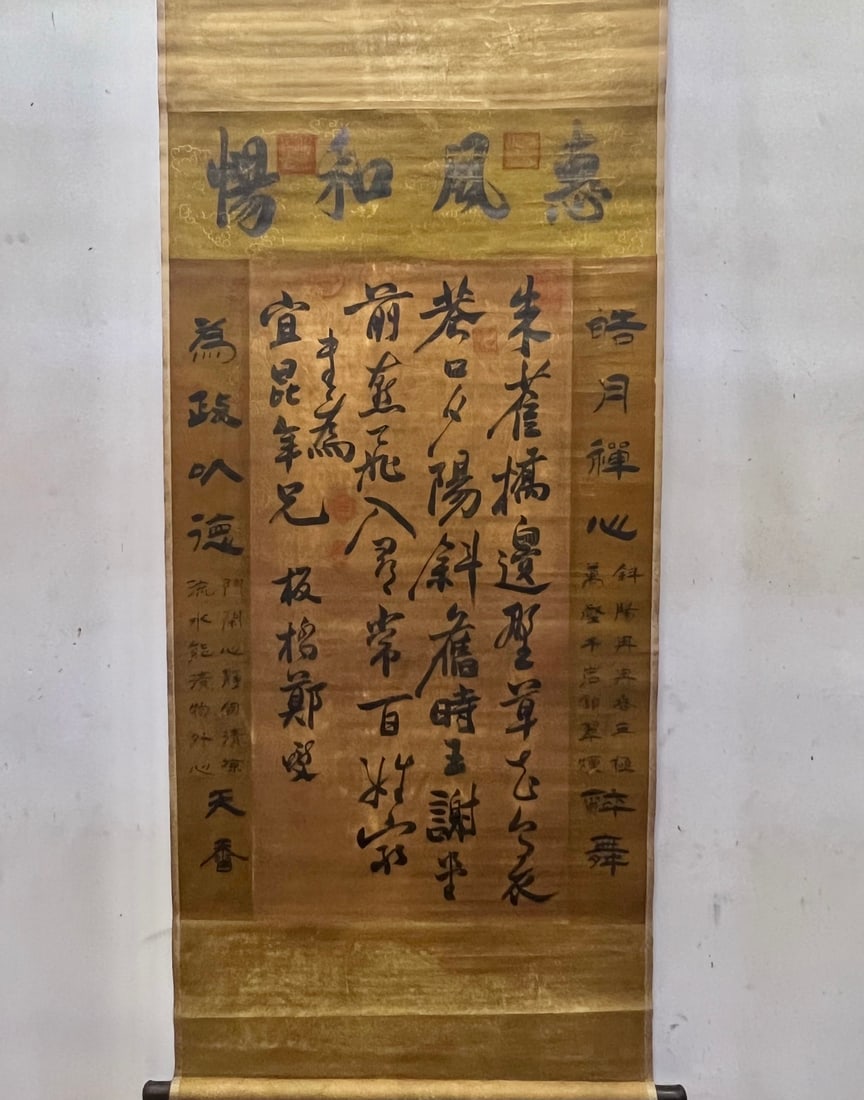 惠風和暢
皓月禪心
斜陽
萬壑千岩
醉舞
朱雀橋邊野草花烏衣
巷口夕陽斜舊時王謝堂
前燕飛入尋常百姓家
書為
宜昆年兄 板橋鄭燮
為政以德
門閑心靜自清涼
流水能清物外心
天香